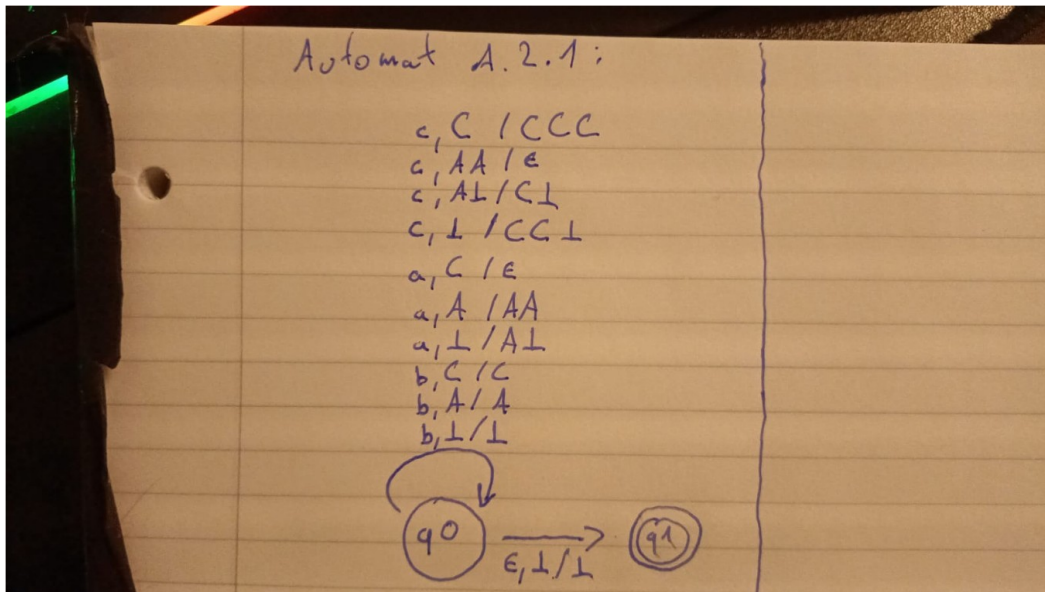 Automat A.2.1:
c, C / CCC
c, AA / ε
c, A⊥ / C⊥
c, ⊥ / CC⊥
a, C / ε
a, A / AA
a, ⊥ / A⊥
b, C / C
b, A / A
b, ⊥ / ⊥
q0
ε, ⊥ / ⊥
q1